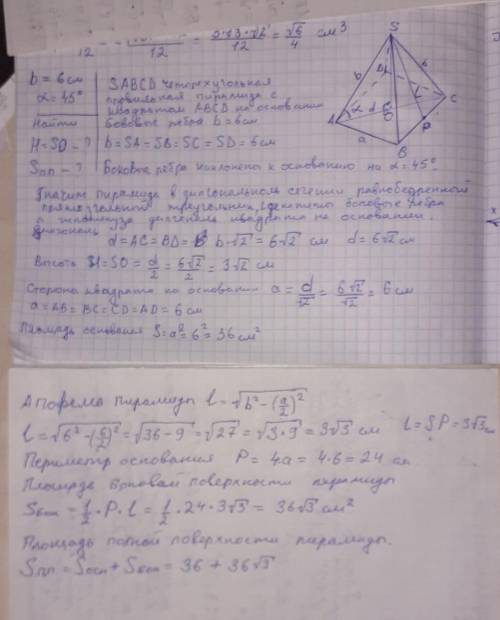 12 12 = 2·√3·√2 / 12 = √6 / 4 см³
b = 6 см
α = 45°
Найти
H = SO - ?
Sпп - ?
SABCD четырехугольная
правильная пирамида с
квадратом ABCD на основании
боковые ребра b = 6 см
b = SA = SB = SC = SD = 6 см
Боковые ребра наклонены к основанию на α = 45°.
S
b
b
D
L
A
α
d
O
C
P
a
B
Значит пирамида в диагональном сечении равнобедренный
прямоугольный треугольник, где катеты боковые ребра
а гипотенуза диагональ квадрата на основании.
Диагональ
d = AC = BD = b·√2 = 6√2 см d = 6√2 см
Высота H = SO = d/2 = 6√2/2 = 3√2 см
Сторона квадрата на основании a = d/√2 = 6√2/√2 = 6 см
a = AB = BC = CD = AD = 6 см
Площадь основания S = a² = 6² = 36 см²
Апофема пирамиды l = √(b² - (a/2)²)
l = √(6² - (6/2)²) = √(36 - 9) = √27 = √(3·9) = 3√3 см l = SP = 3√3 см
Периметр основания P = 4a = 4·6 = 24 см
Площадь боковой поверхности пирамиды
Sбок = 1/2 · P · l = 1/2 · 24 · 3√3 = 36√3 см²
Площадь полной поверхности пирамиды.
Sпп = Sосн + Sбок = 36 + 36√3